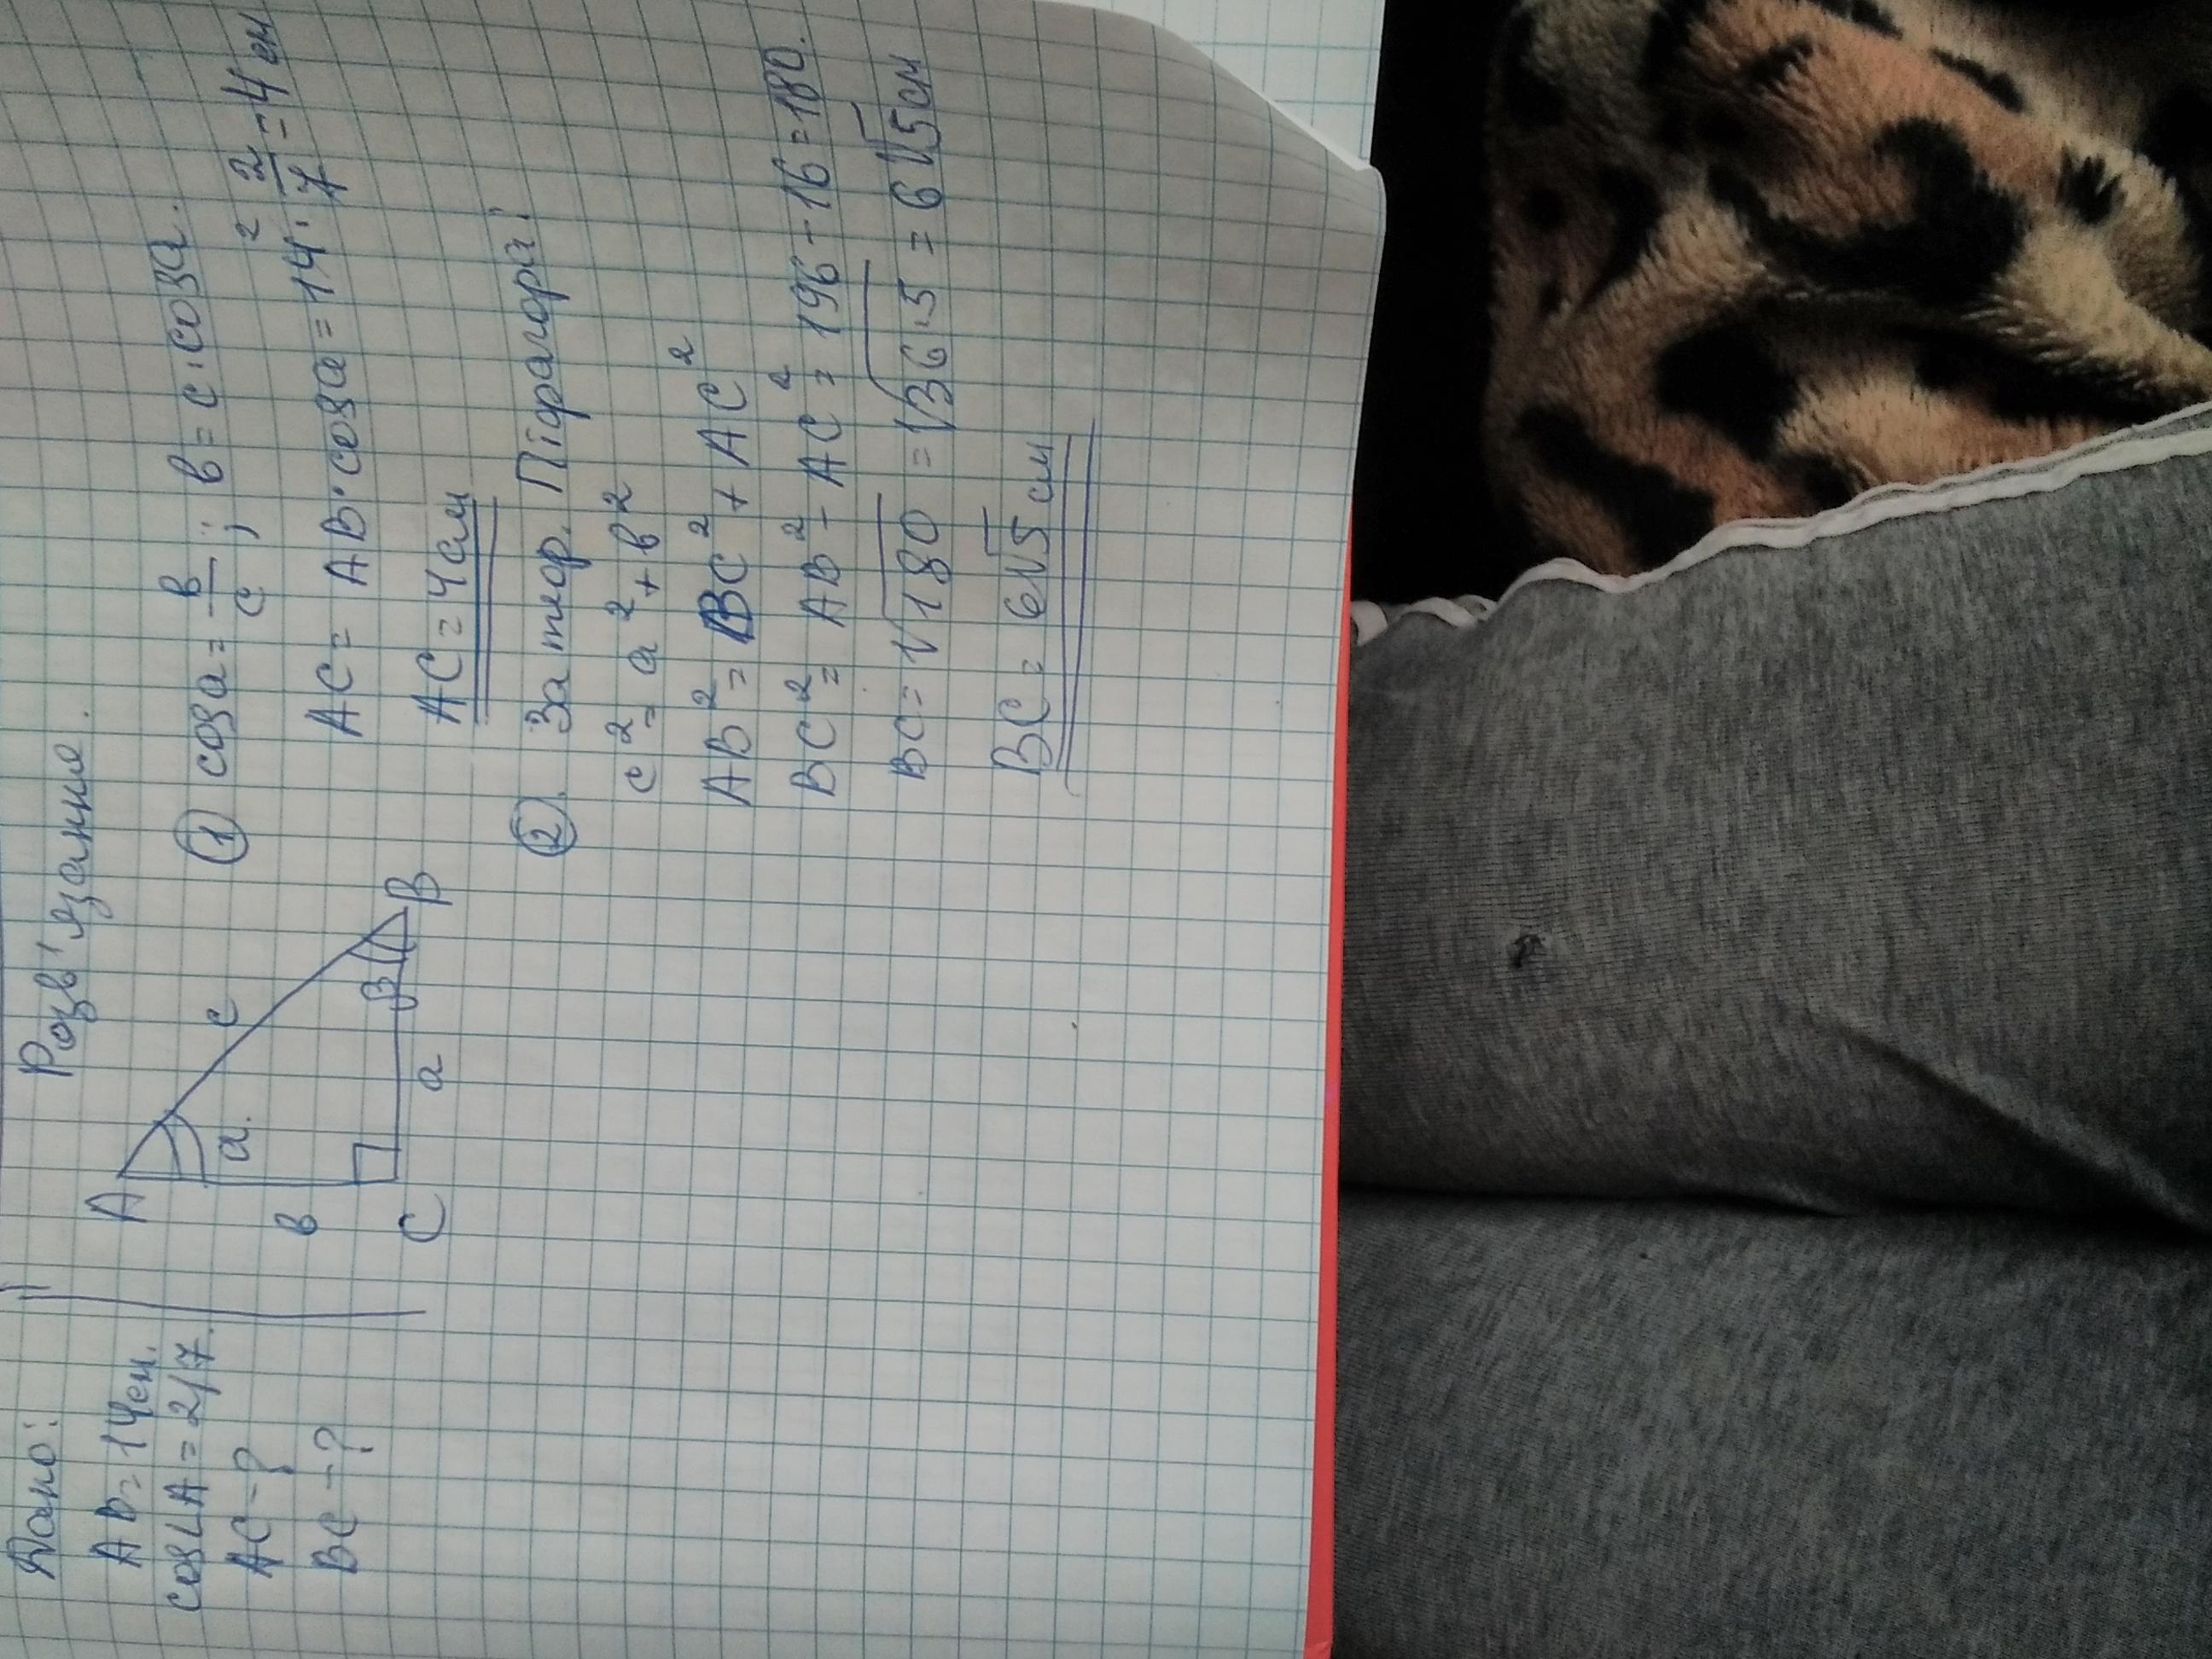 Дано:
AB = 14 см.
cos∠A = 2/7.
AC - ?
BC - ?
Розв'язання.
A
c
a
b
β
C
a
B
① cos a = b/c ; b = c · cos a.
AC = AB · cos a = 14 · 2/7 = 4 см
2
AC = 4 см
②. За теор. Піфагора:
c² = a² + b²
AB² = BC² + AC²
BC² = AB² - AC² = 196 - 16 = 180.
BC = √180 = √36·5 = 6√5 см
BC = 6√5 см